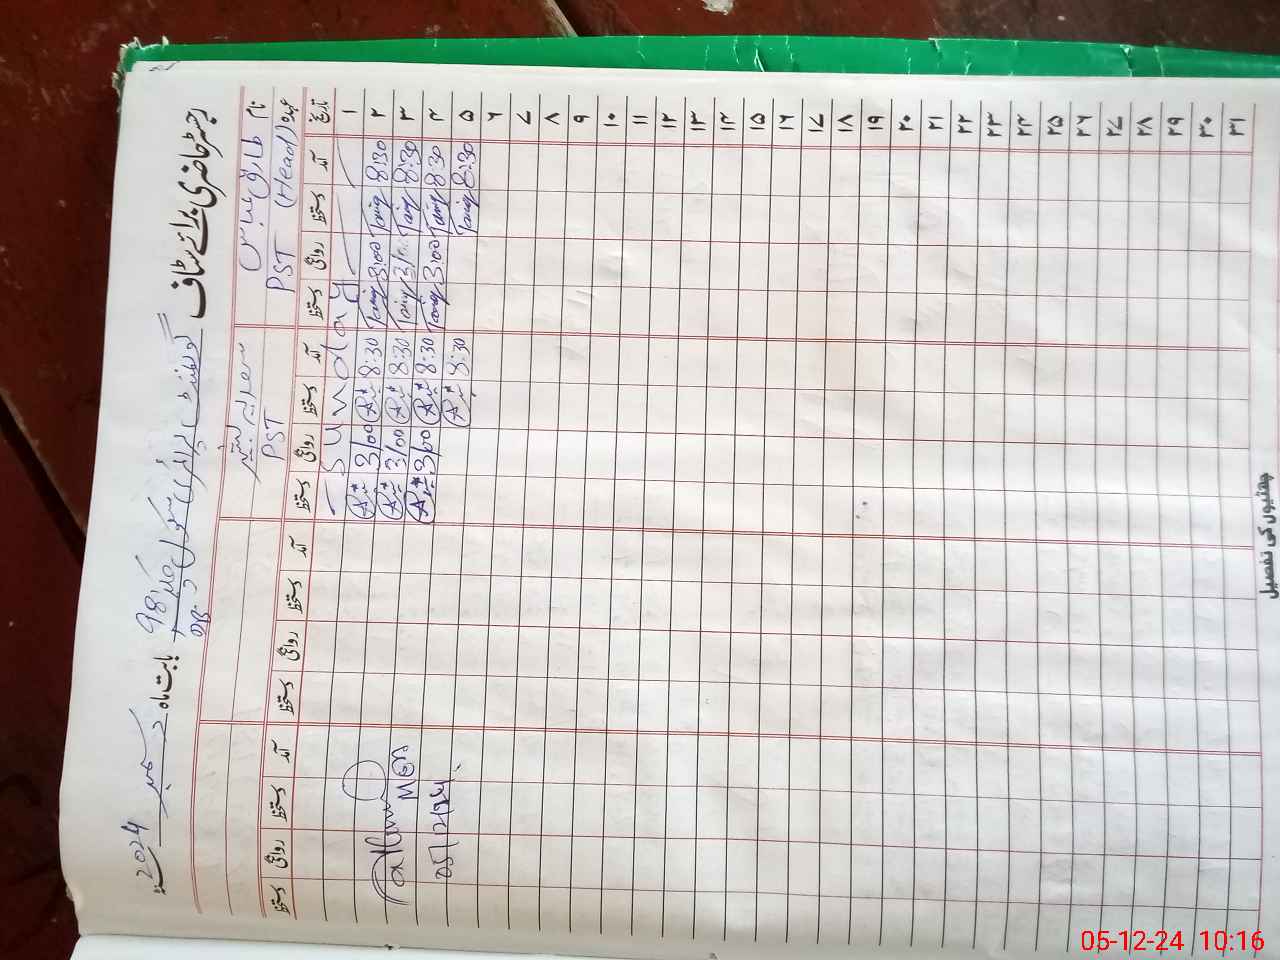 رجسٹر حاضری برائے سٹاف گورنمنٹ پرائمری سکول نمبر 98 بابت ماہ دسمبر 2024ء
نام طارق عباس
عہدہ PST (Head) PST
تاریخ آمد دستخط روانگی دستخط آمد دستخط روانگی دستخط آمد دستخط روانگی دستخط آمد دستخط روانگی دستخط
۱ Sunday
۲ 8:30 Tariq 3:00 Tariq 8:30 3/00
۳ 8:30 Tariq 3/00 Tariq 8:30 3/00
۴ 8:30 Tariq 3:00 Tariq 8:30 3/00
۵ 8:30 Tariq 8:30
05/12/24
۶
۷
۸
۹
۱۰
۱۱
۱۲
۱۳
۱۴
۱۵
۱۶
۱۷
۱۸
۱۹
۲۰
۲۱
۲۲
۲۳
۲۴
۲۵
۲۶
۲۷
۲۸
۲۹
۳۰
۳۱
چھٹیوں کی تفصیل
05-12-24 10:16